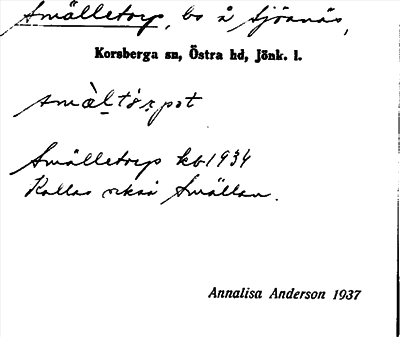 Smälletorp, bs å Sjöanäs,
Korsberga sn, Östra hd, Jönk. l.
smàl̠tór̠pət
Smälletorp kb 1934
Kallas också Smällan.
Annalisa Anderson 1937